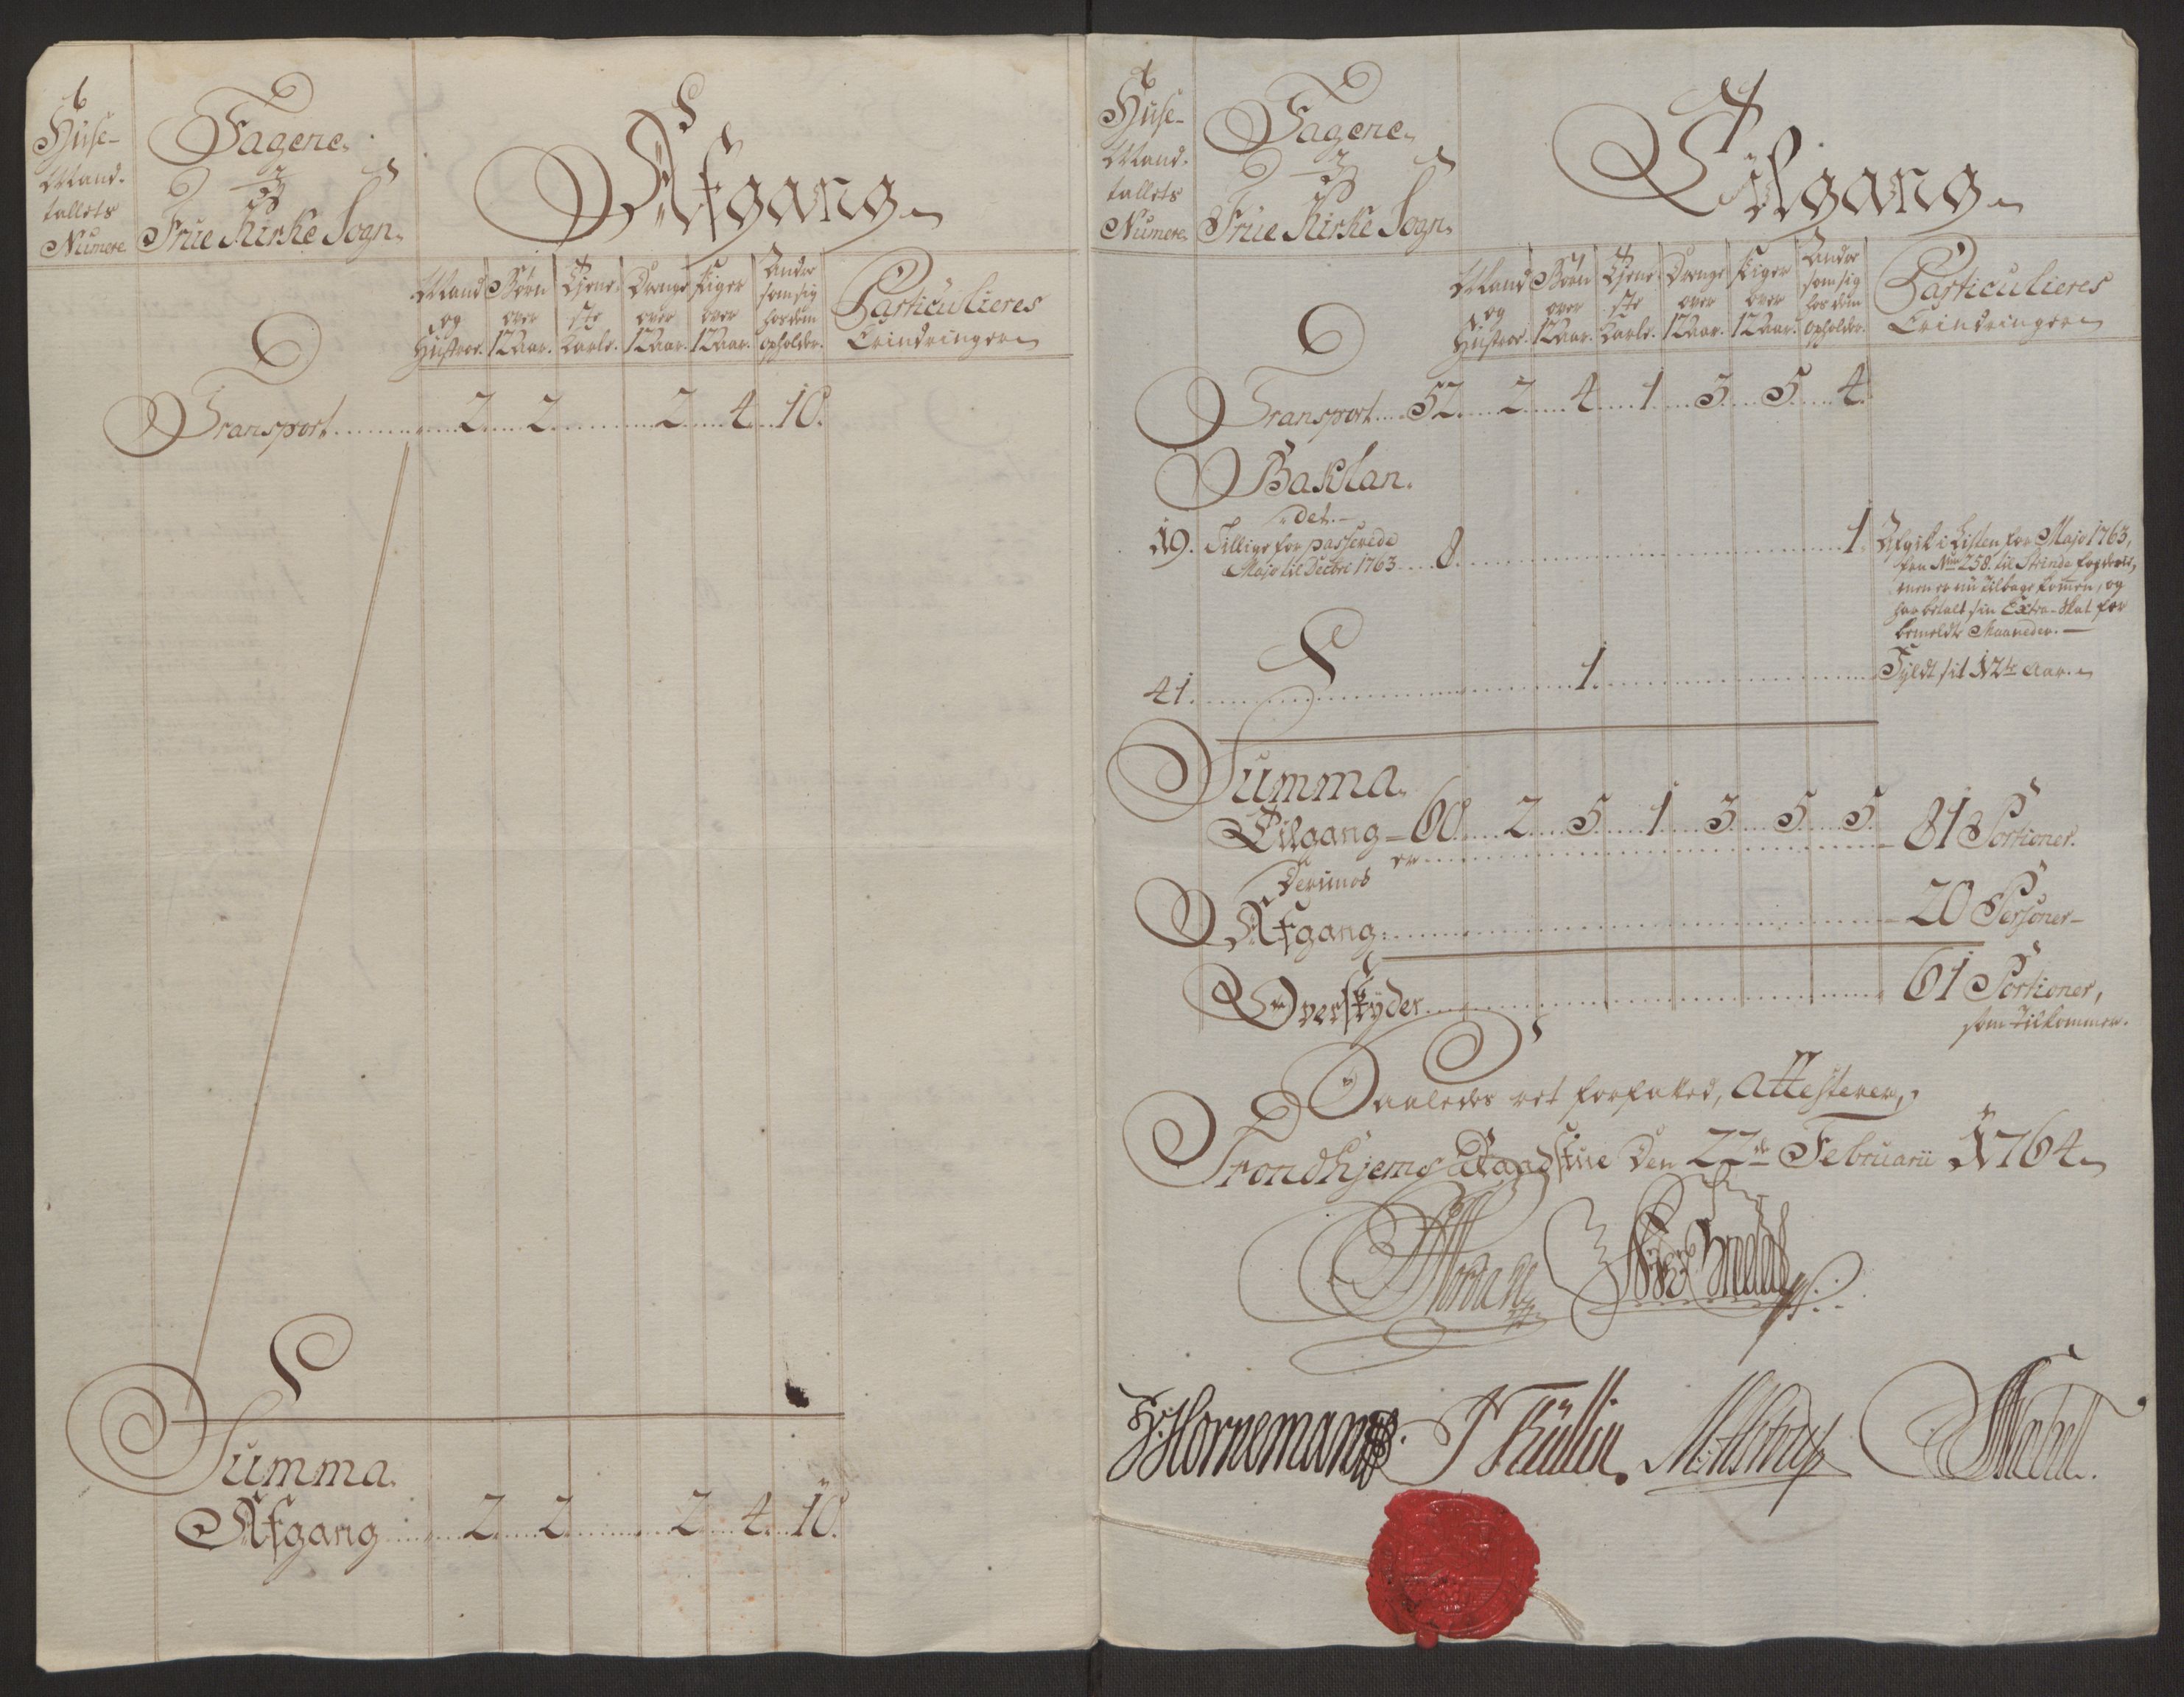 Huse-
Mand-
tallets
Numere
Tagene
i
Frue Kirke Sogn.
Afgang
Mand og Hustroe.
Børn over 12 Aar.
Tjene-ste Karle.
Drenge over 12 Aar.
Piger over 12 Aar.
Andre som sig hos dem opholder.
Particulieres Erindringer
Transport 2. 2. 2. 4. 10.
Summa
Afgang 2. 2. 2. 4. 10.
Huse-
Mand-
tallets
Numere
Tagene
i
Frue Kirke Sogn.
Tilgang
Mand og Hustroe.
Børn over 12 Aar.
Tjene-ste Karle.
Drenge over 12 Aar.
Piger over 12 Aar.
Andre som sig hos dem opholder.
Particulieres Erindringer
Transport 52. 2. 4. 1. 3. 5. 4.
Baklan-
det.
19. Tillige for passerede
Majo til Decbre 1763 8. 1.
Afgik i Listen for Majo 1763,
fra No 258. til Strinde
men er nu tilbage kommen, og
har betalt sin Extra-Skat for
bemeldte Maaneder.
41. 1. Fyldt sit 12te Aar.
Summa
Tilgang 60. 2. 5. 1. 3. 5. 5. 81 Portioner.
er
Derimod
Afgang 20 Personer
Overskyder 61 Portioner,
som tilkommer.
Saaledes ret forfatted, attesterer,
Trondhjems Raadstue Den 22de Februarii 1764.
Hornemann